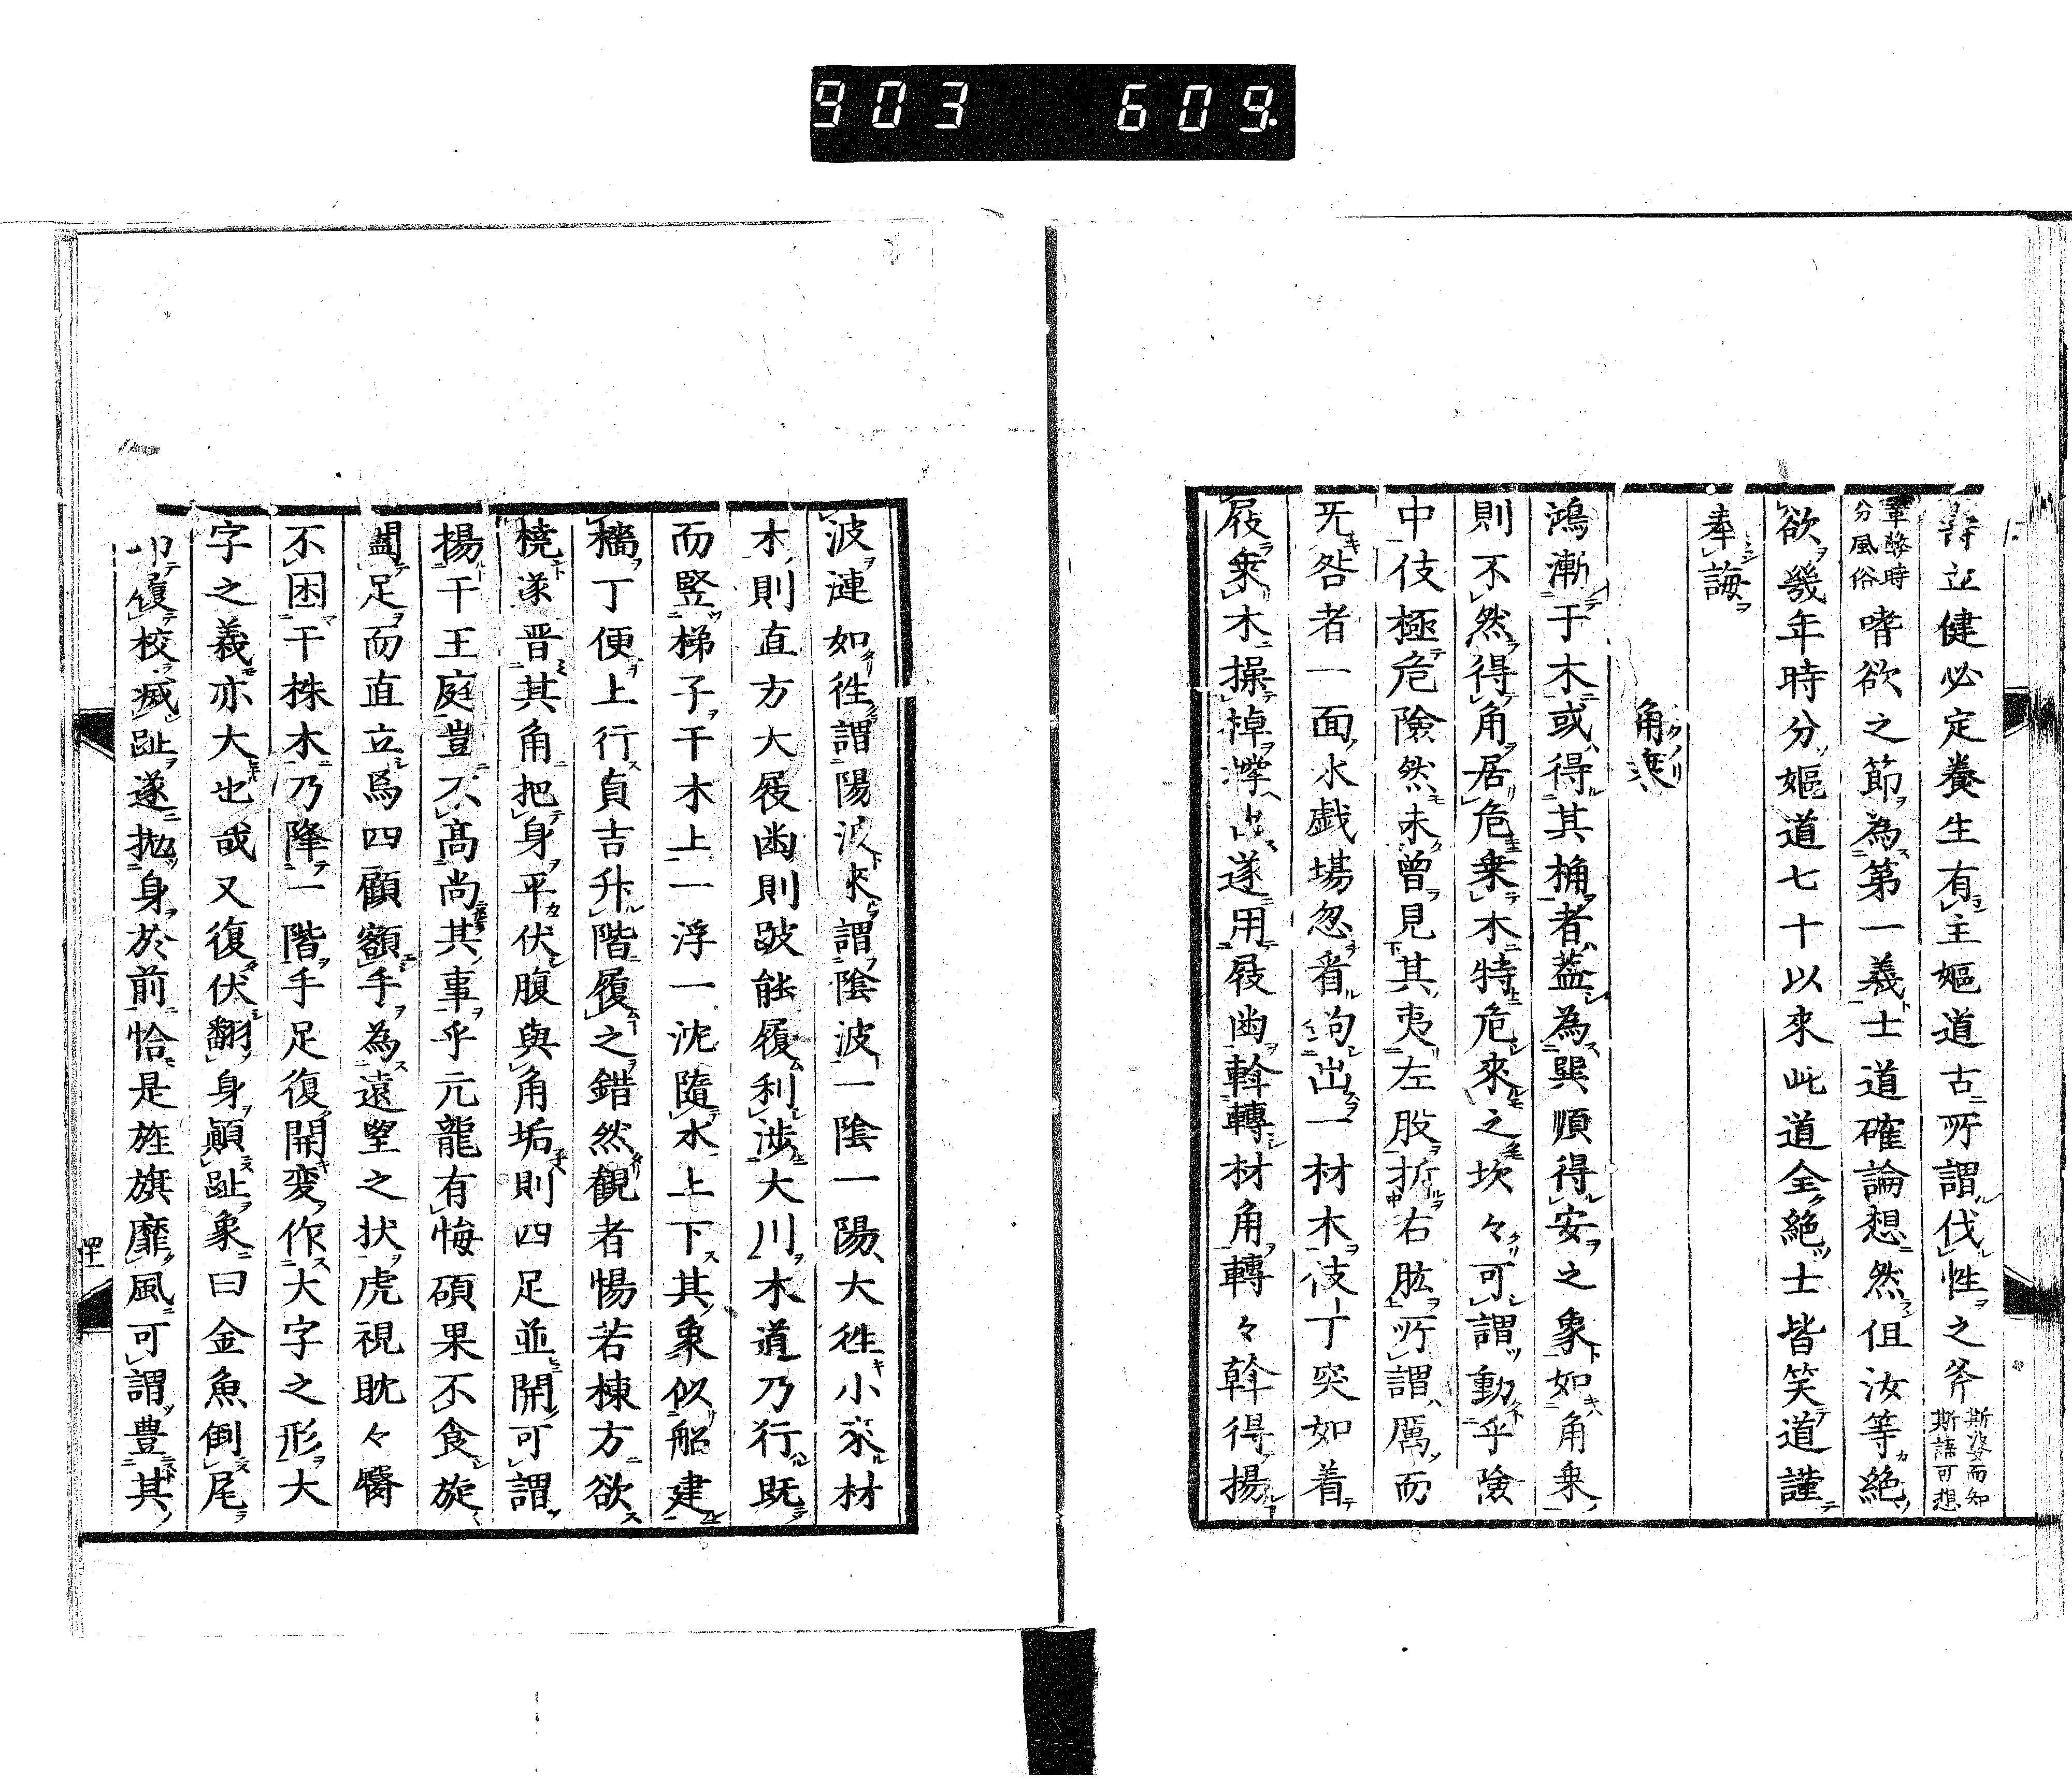 903 609.
立健必定養生有主嫗道古所謂伐性之斧斯婆而知斯語可想
軍弊時分風俗嗜欲之節為第一義士道確論想然但汝等絶
欲幾年時分嫗道七十以來此道全絶士皆笑道謹
奉誨
角乘
鴻漸于木或得其桷者蓋為巽順得安之象如角乘
則不然得角居危乗木特危來之坎々可謂動乎險
中伎極危險然未曽見其夷左股折右肱所謂厲而
旡咎者一面水戯塲忽看沟出一材木伎丁突如着
屐乗木操棹出遂用屐歯斡轉材角轉々斡得揚
波漣如徃謂陽波來謂陰波一陰一陽大徃小来材
木則直方大屐歯則跛能履利渉大川木道乃行既
而竪梯子于木上一浮一沈隨水上下其象似舩建
檣丁便上行貞吉升階履之錯然観者惕若棟方欲
橈遂晋其角把身平伏腹與角垢則四足並開可謂
揚于王庭豈不髙尚其事乎亢龍有悔碩果不食旋
闔足而直立爲四顧額手為遠望之状虎視眈々臀
不困于株木乃降一階手足復開変作大字之形大
字之義亦大也哉又復伏翻身顛趾象曰金魚倒尾
即復校滅趾遂抛身於前恰是旌旗靡風可謂豊其